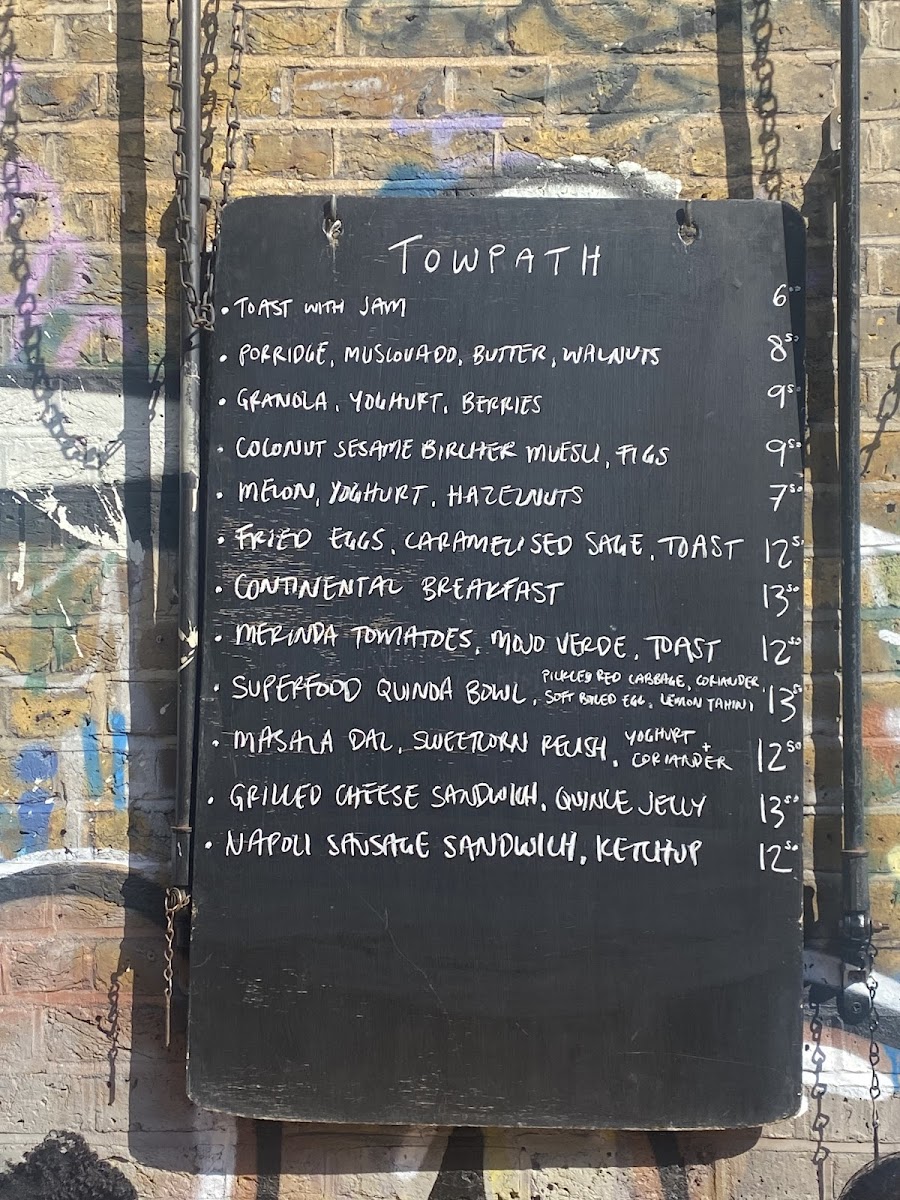 TOWPATH
• TOAST WITH JAM 6⁰⁰
• PORRIDGE, MUSCOVADO, BUTTER, WALNUTS 8⁵⁰
• GRANOLA, YOGHURT, BERRIES 9⁵⁰
• COCONUT SESAME BIRCHER MUESLI, FIGS 9⁵⁰
• MELON, YOGHURT, HAZELNUTS 7⁵⁰
• FRIED EGGS, CARAMELISED SAGE, TOAST 12⁵⁰
• CONTINENTAL BREAKFAST 13⁵⁰
• MERINDA TOMATOES, MOJO VERDE, TOAST 12⁵⁰
• SUPERFOOD QUINOA BOWL, PICKLED RED CABBAGE, CORIANDER,
SOFT BOILED EGG, LEMON TAHINI 13⁵⁰
• MASALA DAL, SWEETCORN RELISH, YOGHURT +
CORIANDER 12⁵⁰
• GRILLED CHEESE SANDWICH, QUINCE JELLY 13⁵⁰
• NAPOLI SAUSAGE SANDWICH, KETCHUP 12⁵⁰